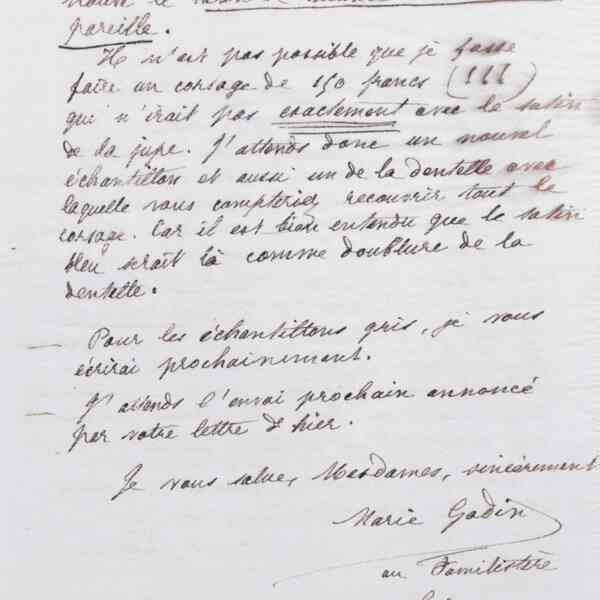 pareille.
Il n'est pas possible que je fasse
faire un corsage de 150 francs (!!!)
qui n'irait pas exactement avec le satin
de la jupe. J'attends donc un nouvel
échantillon et aussi un de la dentelle avec
laquelle vous compteriez recouvrir tout le
corsage. Car il est bien entendu que le satin
bleu serait là comme doublure de la
dentelle.
— Pour les échantillons gris, je vous
écrirai prochainement.
— J'attends l'envoi prochain annoncé
par votre lettre d'hier.
Je vous salue, Mesdames, sincèrement
Marie Godin
au Familistère